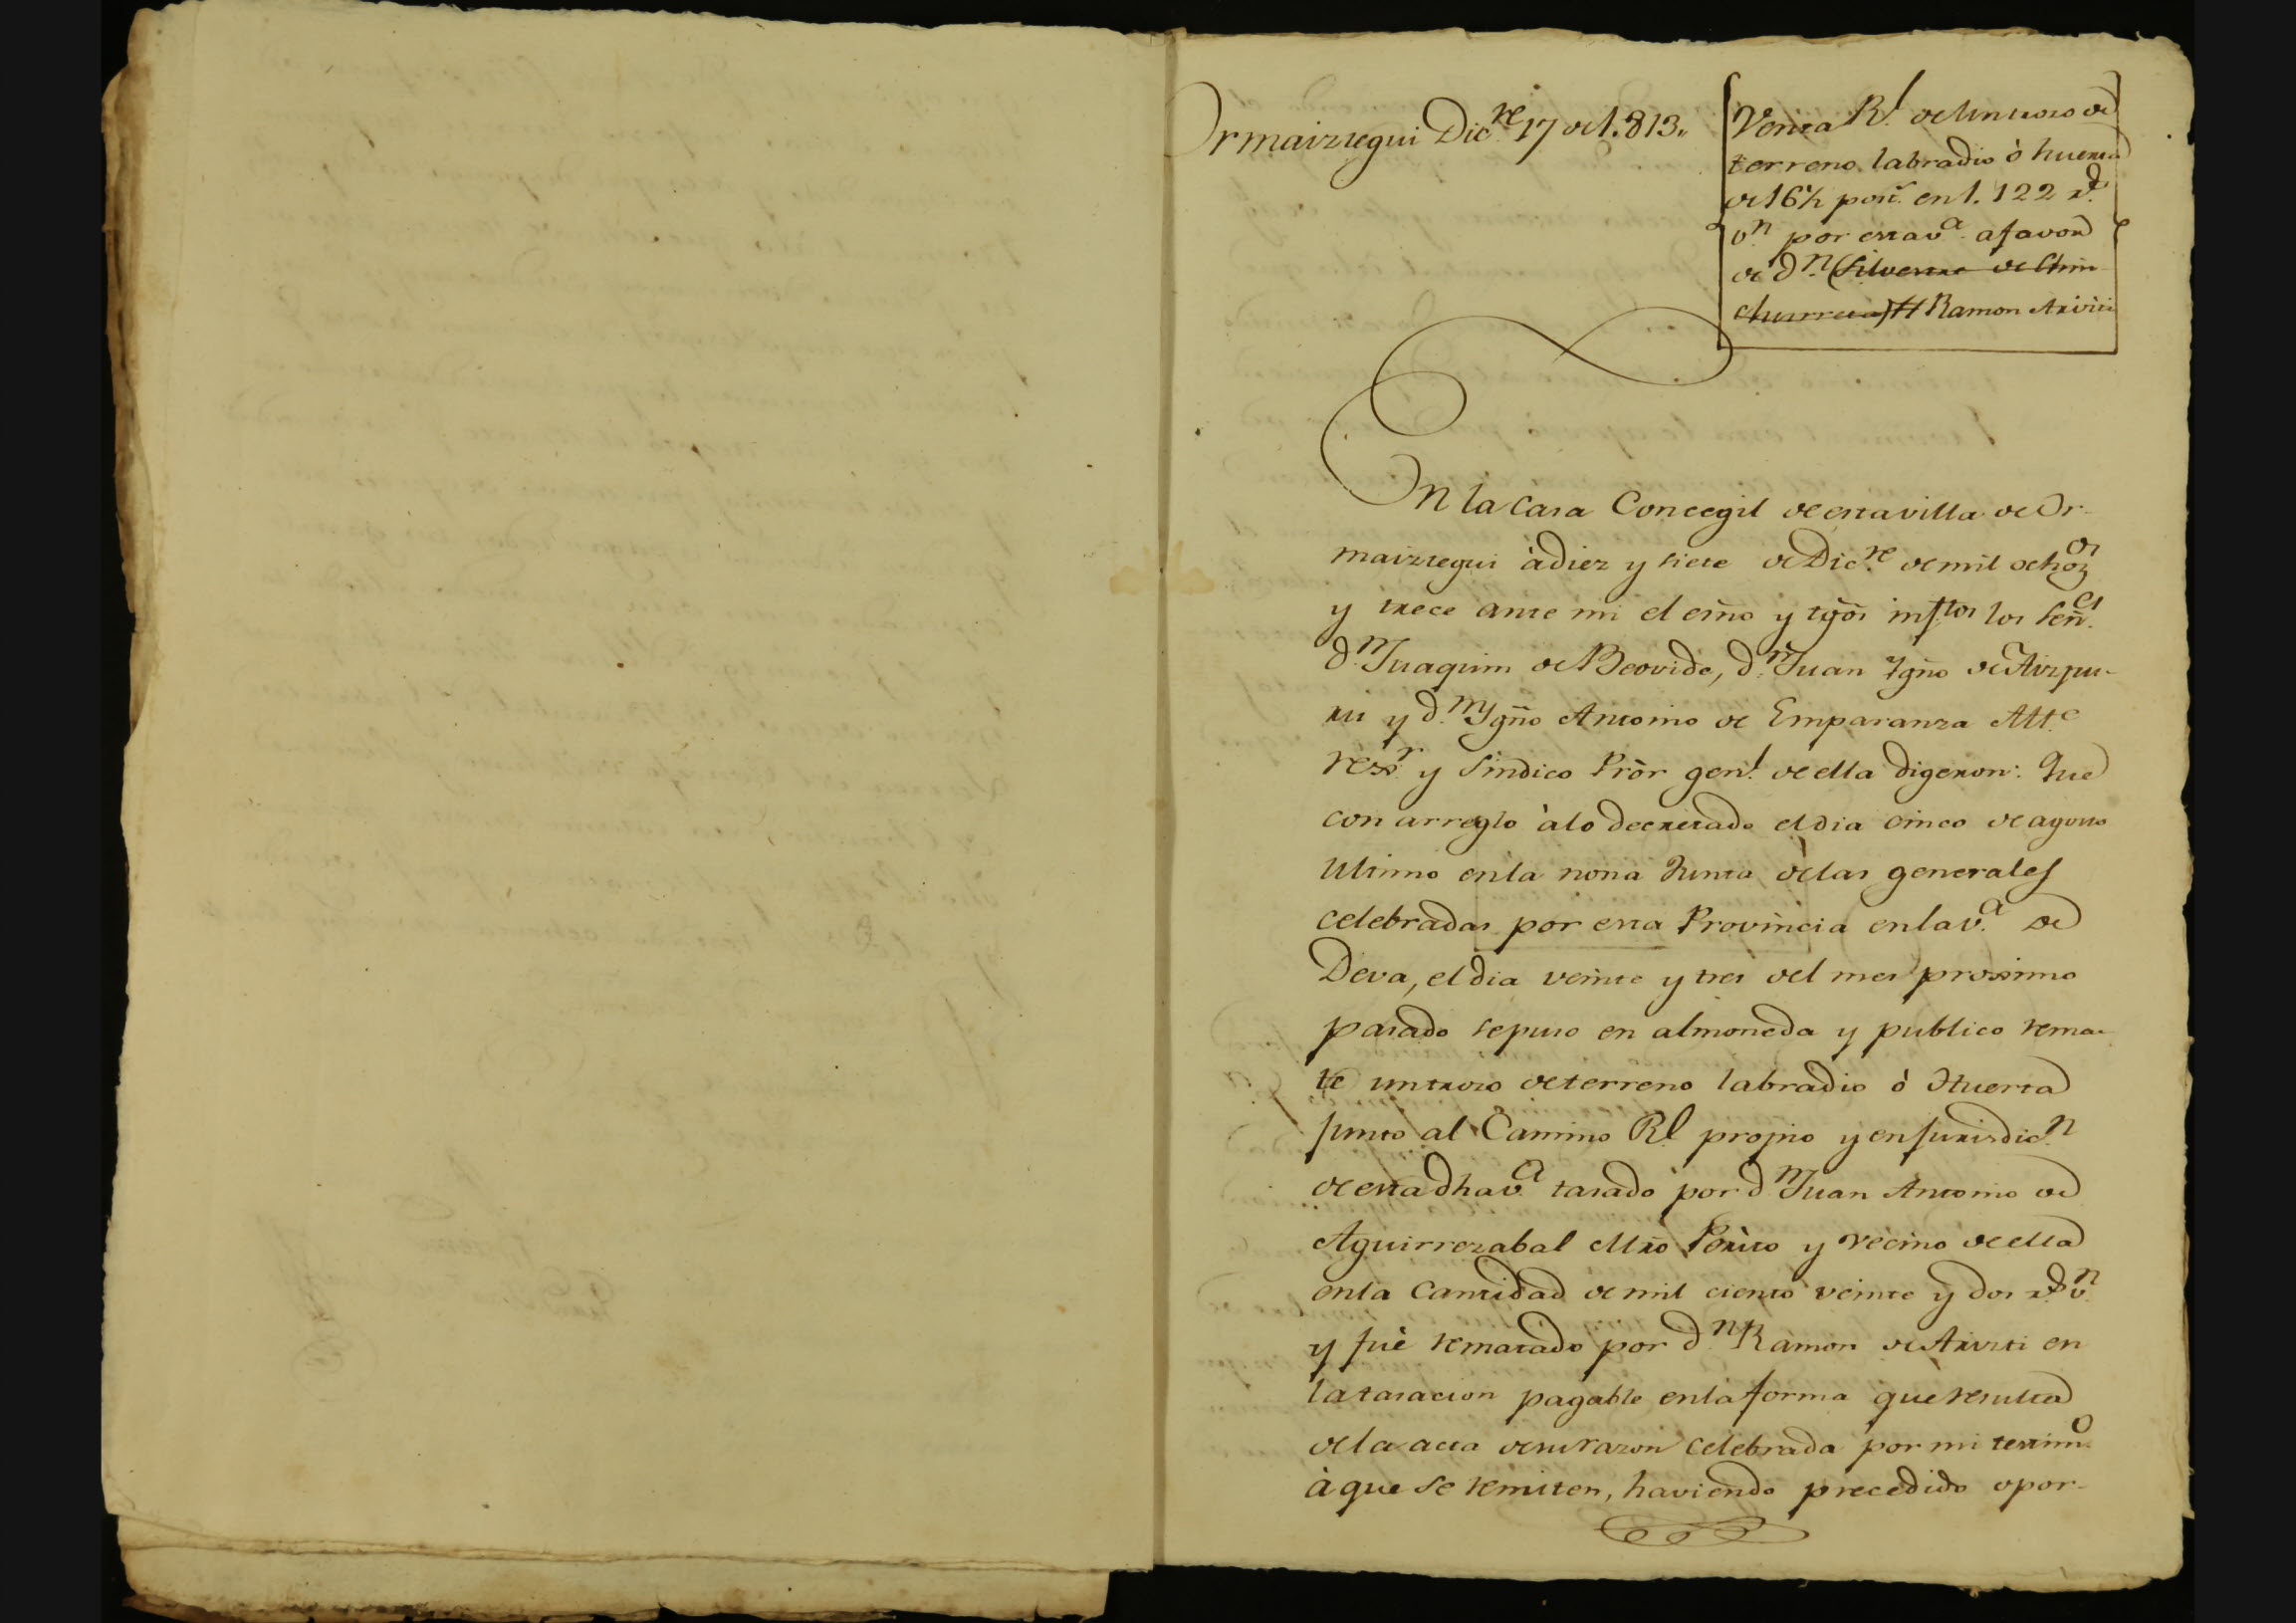 Ormaiztegui Dic.re 17 de 1.813.,
Venta R.l de un trozo de
terreno labradio ò huerta
de 16½ post.s en 1.122 r.s
v.n por esta v.a a favor
de d.n (Silvestre de Chin
churreta) // Ramon Arizti
En la Casa Concegil de esta villa de Or-
maiztegui à diez y siete de Dic.re de mil ochoz.os
y trece ante mi el eśno y tgõs infros los señ.es
d.n Juaquin de Beovide, d.n Juan Ygño de Aizpu-
ru y d.n Ygño Antonio de Emparanza Alt.e
rex.r y Sindico Prór gen.l de ella digeron: Que
con arreglo à lo decretado el dia cinco de agosto
ultimo en la nona Junta de las generales
celebradas por esta Provincia en la v.a de
Deva, el dia veinte y tres del mes prossimo
pasado se puso en almoneda y publico rema-
te un trozo de terreno labradio ò Huerta
junto al Camino R.l propio y en jurisdic.n
de esta dha v.a tasado por d.n Juan Antonio de
Aguirrezabal Mro Périto y vecino de ella
en la Cantidad de mil ciento veinte y dos r.s v.n
y fué rematado por d.n Ramon de Arizti en
la tasacion pagable en la forma que resulta
de la acta de su razon celebrada por mi testim.o
à que se remiten, haviendo precedido opor-